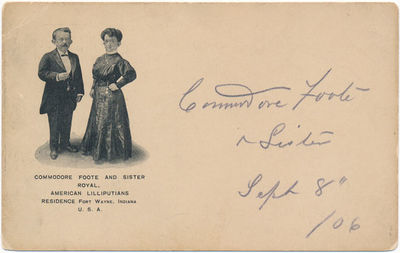 COMMODORE FOOTE AND SISTER
ROYAL,
AMERICAN LILLIPUTIANS
RESIDENCE FORT WAYNE, INDIANA
U. S. A.
Commodore Foote
& Sister
Sept 8"
/06